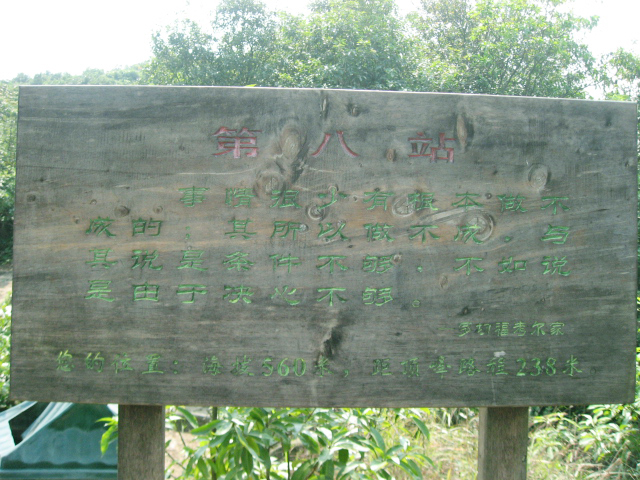 第八站
事情很少有根本做不
成的，其所以做不成，与
其说是条件不够，不如说
是由于决心不够。
罗切福考尔家
您的位置：海拔560米，距顶峰路程238米